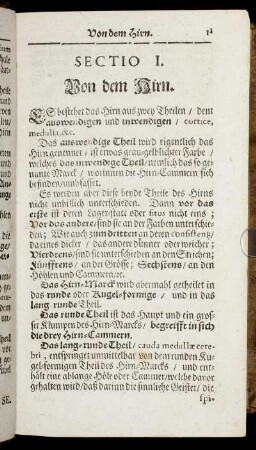 Von dem Hirn. 18
SECTIO I.
Von dem Hirn.
ES bestehet das Hirn aus zwey Theilen / dem
auswendigen und inwendigen / cortice,
medulla, &c.
Das auswendige Theil wird eigentlich das
Hirn genennet / ist etwas grau-gelblichter Farbe /
welches das inwendige Theil / nemlich das so ge-
nante Marck / worinnen die Hirn-Cammern sich
befinden / umbfasset.
Es werden aber diese beyde Theile des Hirns
nicht unbillich unterschieden. Dann vor das
erste ist deren Lagerstatt oder situs nicht eins;
Vor das andere / sind sie an der Farben unterschie-
den; Wie auch zum dritten an deren consistenz /
da eines dicker / das andere dünner oder weicher;
Vierdtens / sind sie unterschieden an den Strichen;
Fünfftens / an der Grösse; Sechstens / an den
Höhlen und Cammern.
Das Hirn-Marck wird abermahl getheilet in
das runde oder Kugel-formige / und in das
lang-runde Theil.
Das runde Theil ist das Haupt und ein gros-
ser Klumpen des Hirn-Marcks / begreifft in sich
die drey Hirn-Cammern.
Das lang-runde Theil / cauda medullæ cere-
bri, entspringet unmittelbar von dem runden Ku-
gel-formigen Theil des Hirn-Marcks / und ent-
hält eine ablange Höle oder Cammer / welche davor
gehalten wird / daß darian die sinnliche Geister / die
spi-
SE.